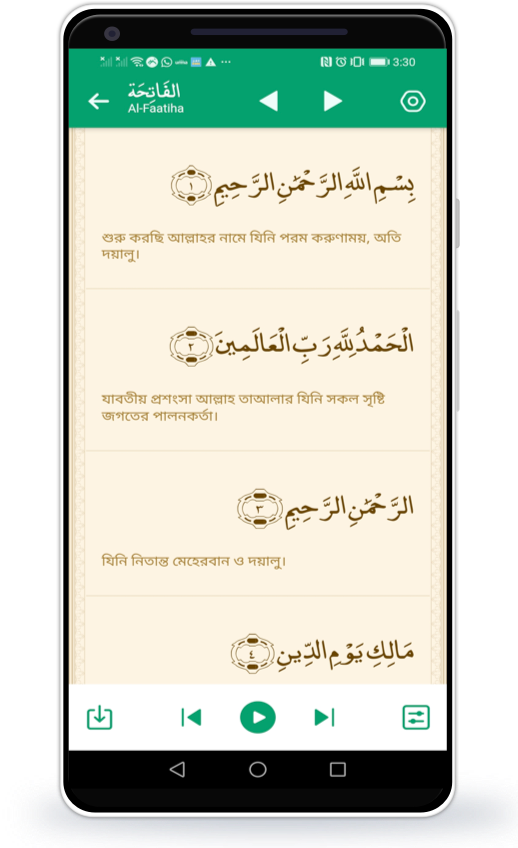 3:30
الفَاتِحَة
Al-Faatiha
بِسْمِ اللَّهِ الرَّحْمَٰنِ الرَّحِيمِ ١
শুরু করছি আল্লাহর নামে যিনি পরম করুণাময়, অতি
দয়ালু।
الْحَمْدُ لِلَّهِ رَبِّ الْعَالَمِينَ ٢
যাবতীয় প্রশংসা আল্লাহ তাআলার যিনি সকল সৃষ্টি
জগতের পালনকর্তা।
الرَّحْمَٰنِ الرَّحِيمِ ٣
যিনি নিতান্ত মেহেরবান ও দয়ালু।
مَالِكِ يَوْمِ الدِّينِ ٤